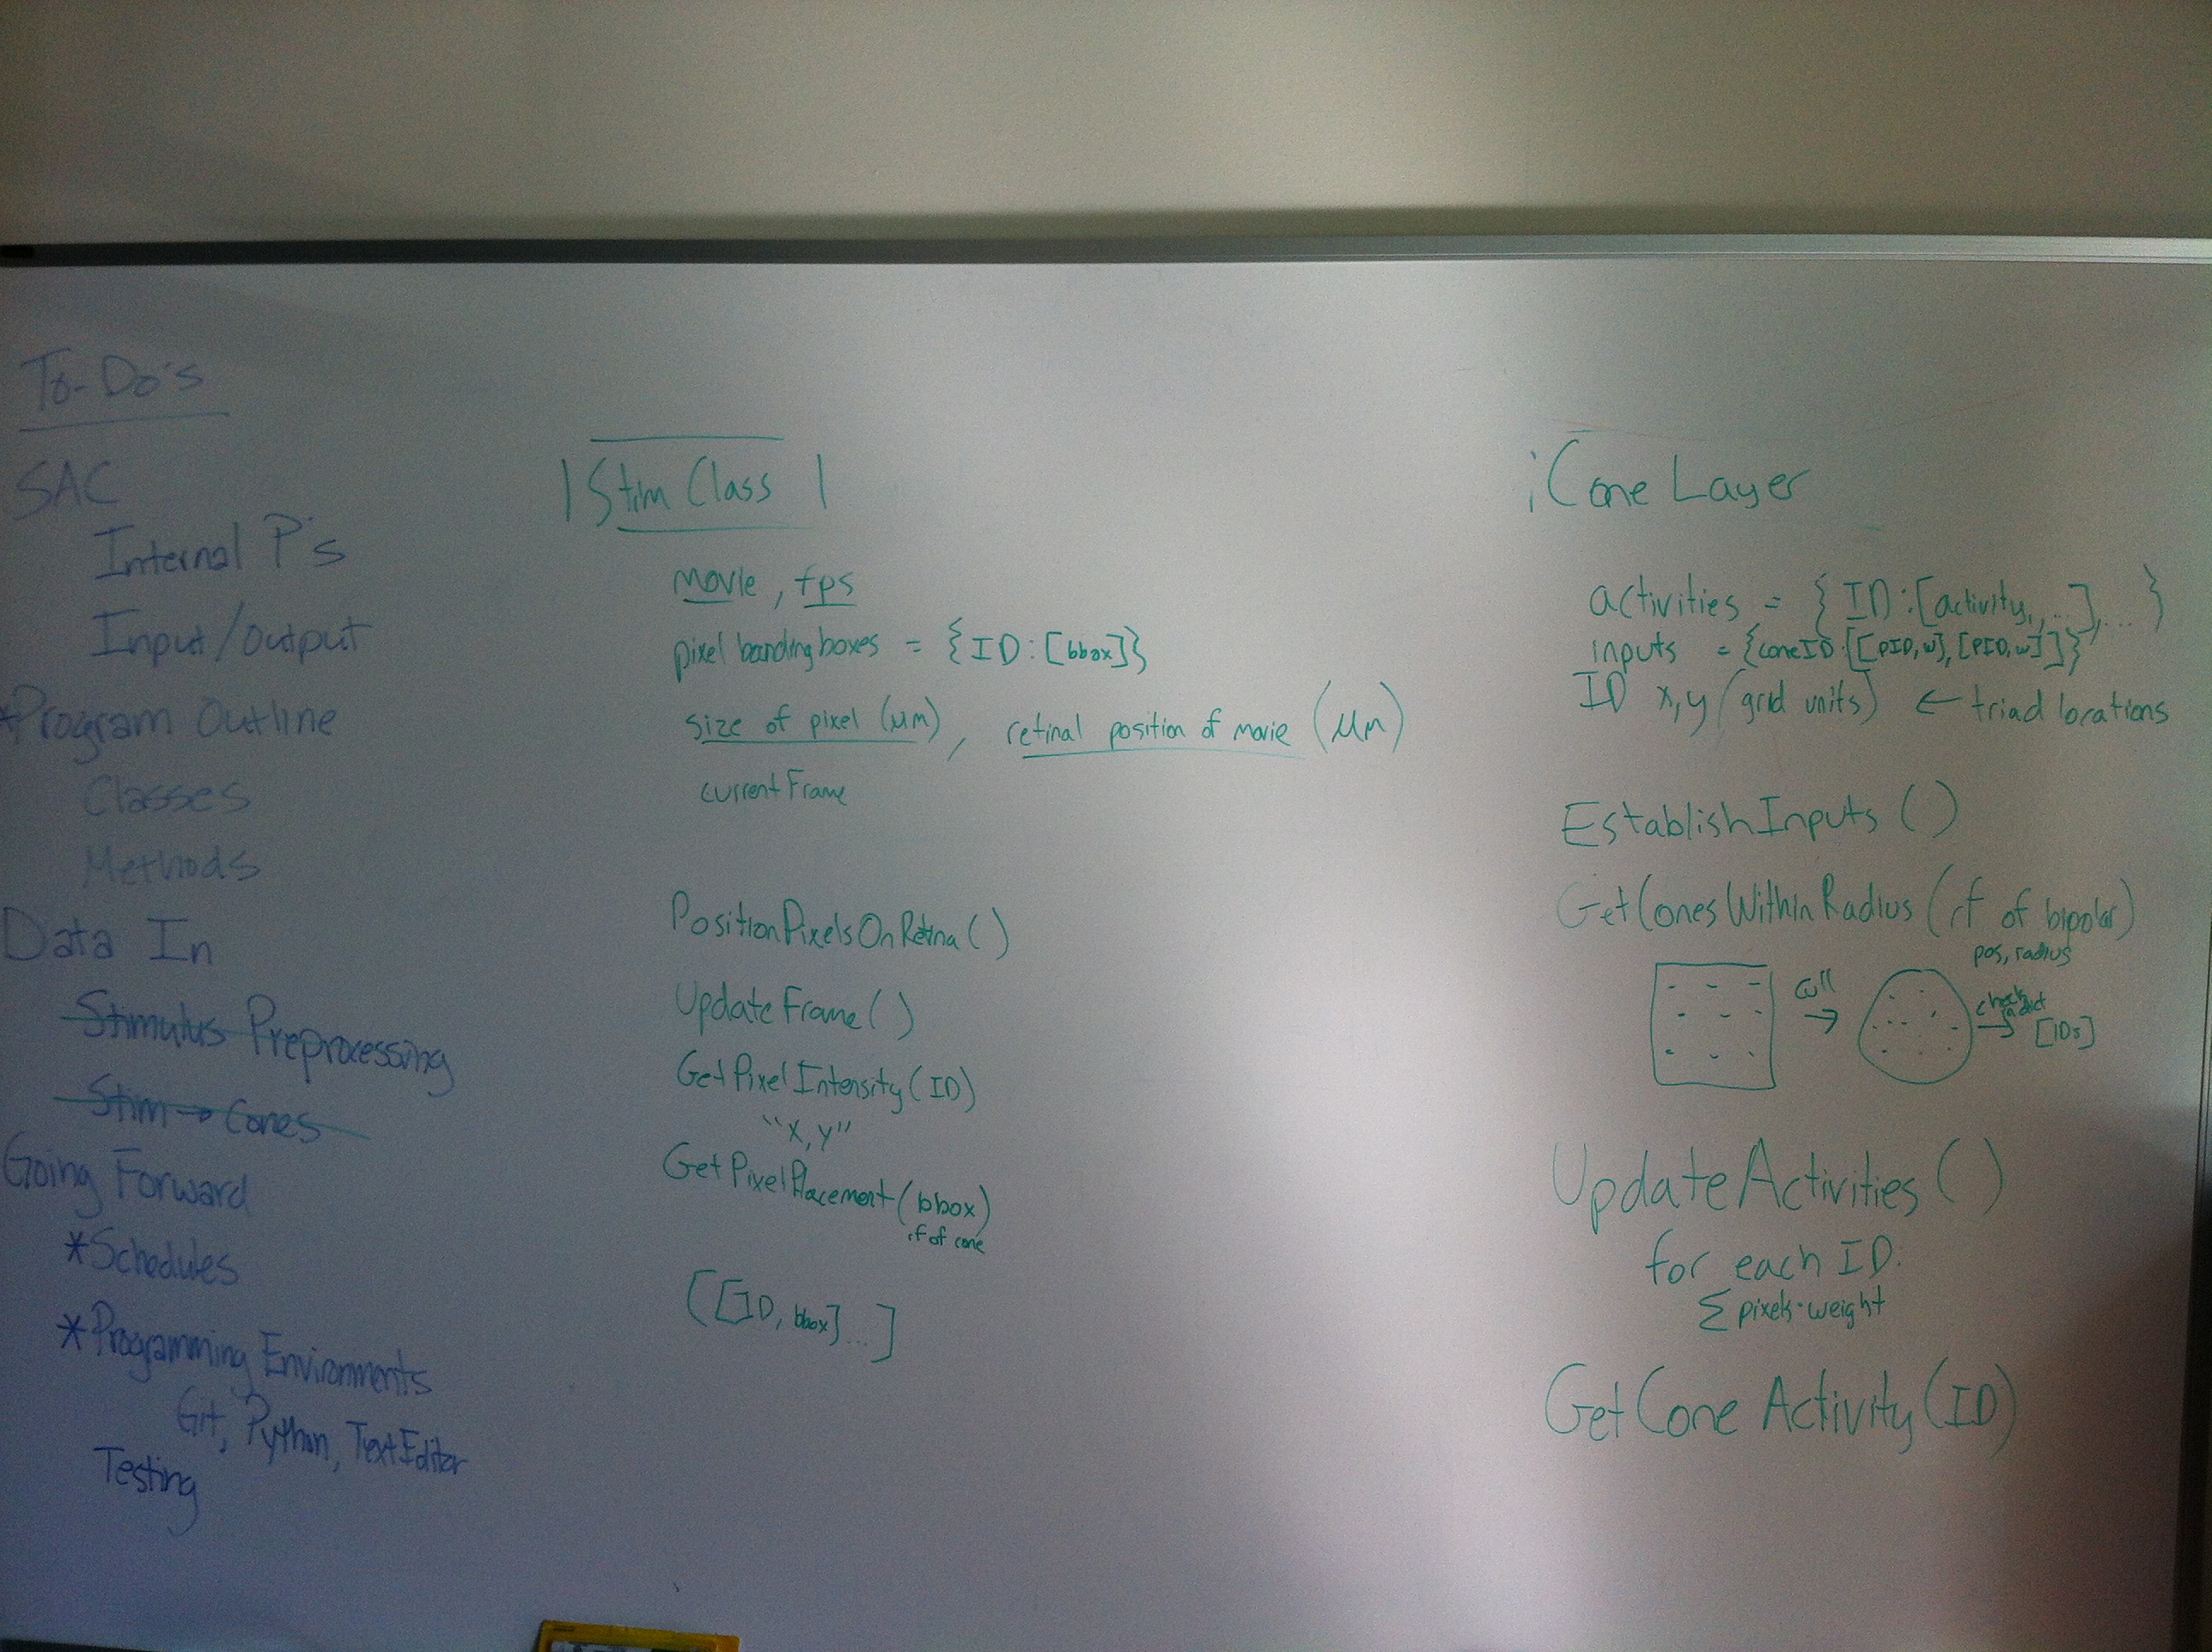 To-Do's
SAC
Internal P's
Input/Output
*Program Outline
Classes
Methods
Data In
Stimulus Preprocessing
Stim → Cones
Going Forward
*Schedules
*Programming Environments
Git, Python, TextEditor
Testing
Stim Class
movie, fps
pixel bandingboxes = {ID:[bbox]}
size of pixel (μm), retinal position of movie (μm)
currentFrame
PositionPixelsOnRetina()
UpdateFrame()
GetPixelIntensity(ID)
"x,y"
GetPixelPlacement(bbox)
rf of cone
[[ID, bbox]...]
Cone Layer
activities = {ID:[activity,...],...}
inputs = {coneID:[[PID,w],[PID,w]]}
ID x,y (grid units) ← triad locations
EstablishInputs()
GetConesWithinRadius(rf of bipolar)
pos, radius
cull
→
check
dict
→ [IDs]
UpdateActivities()
for each ID:
Σ pixels·weight
GetConeActivity(ID)